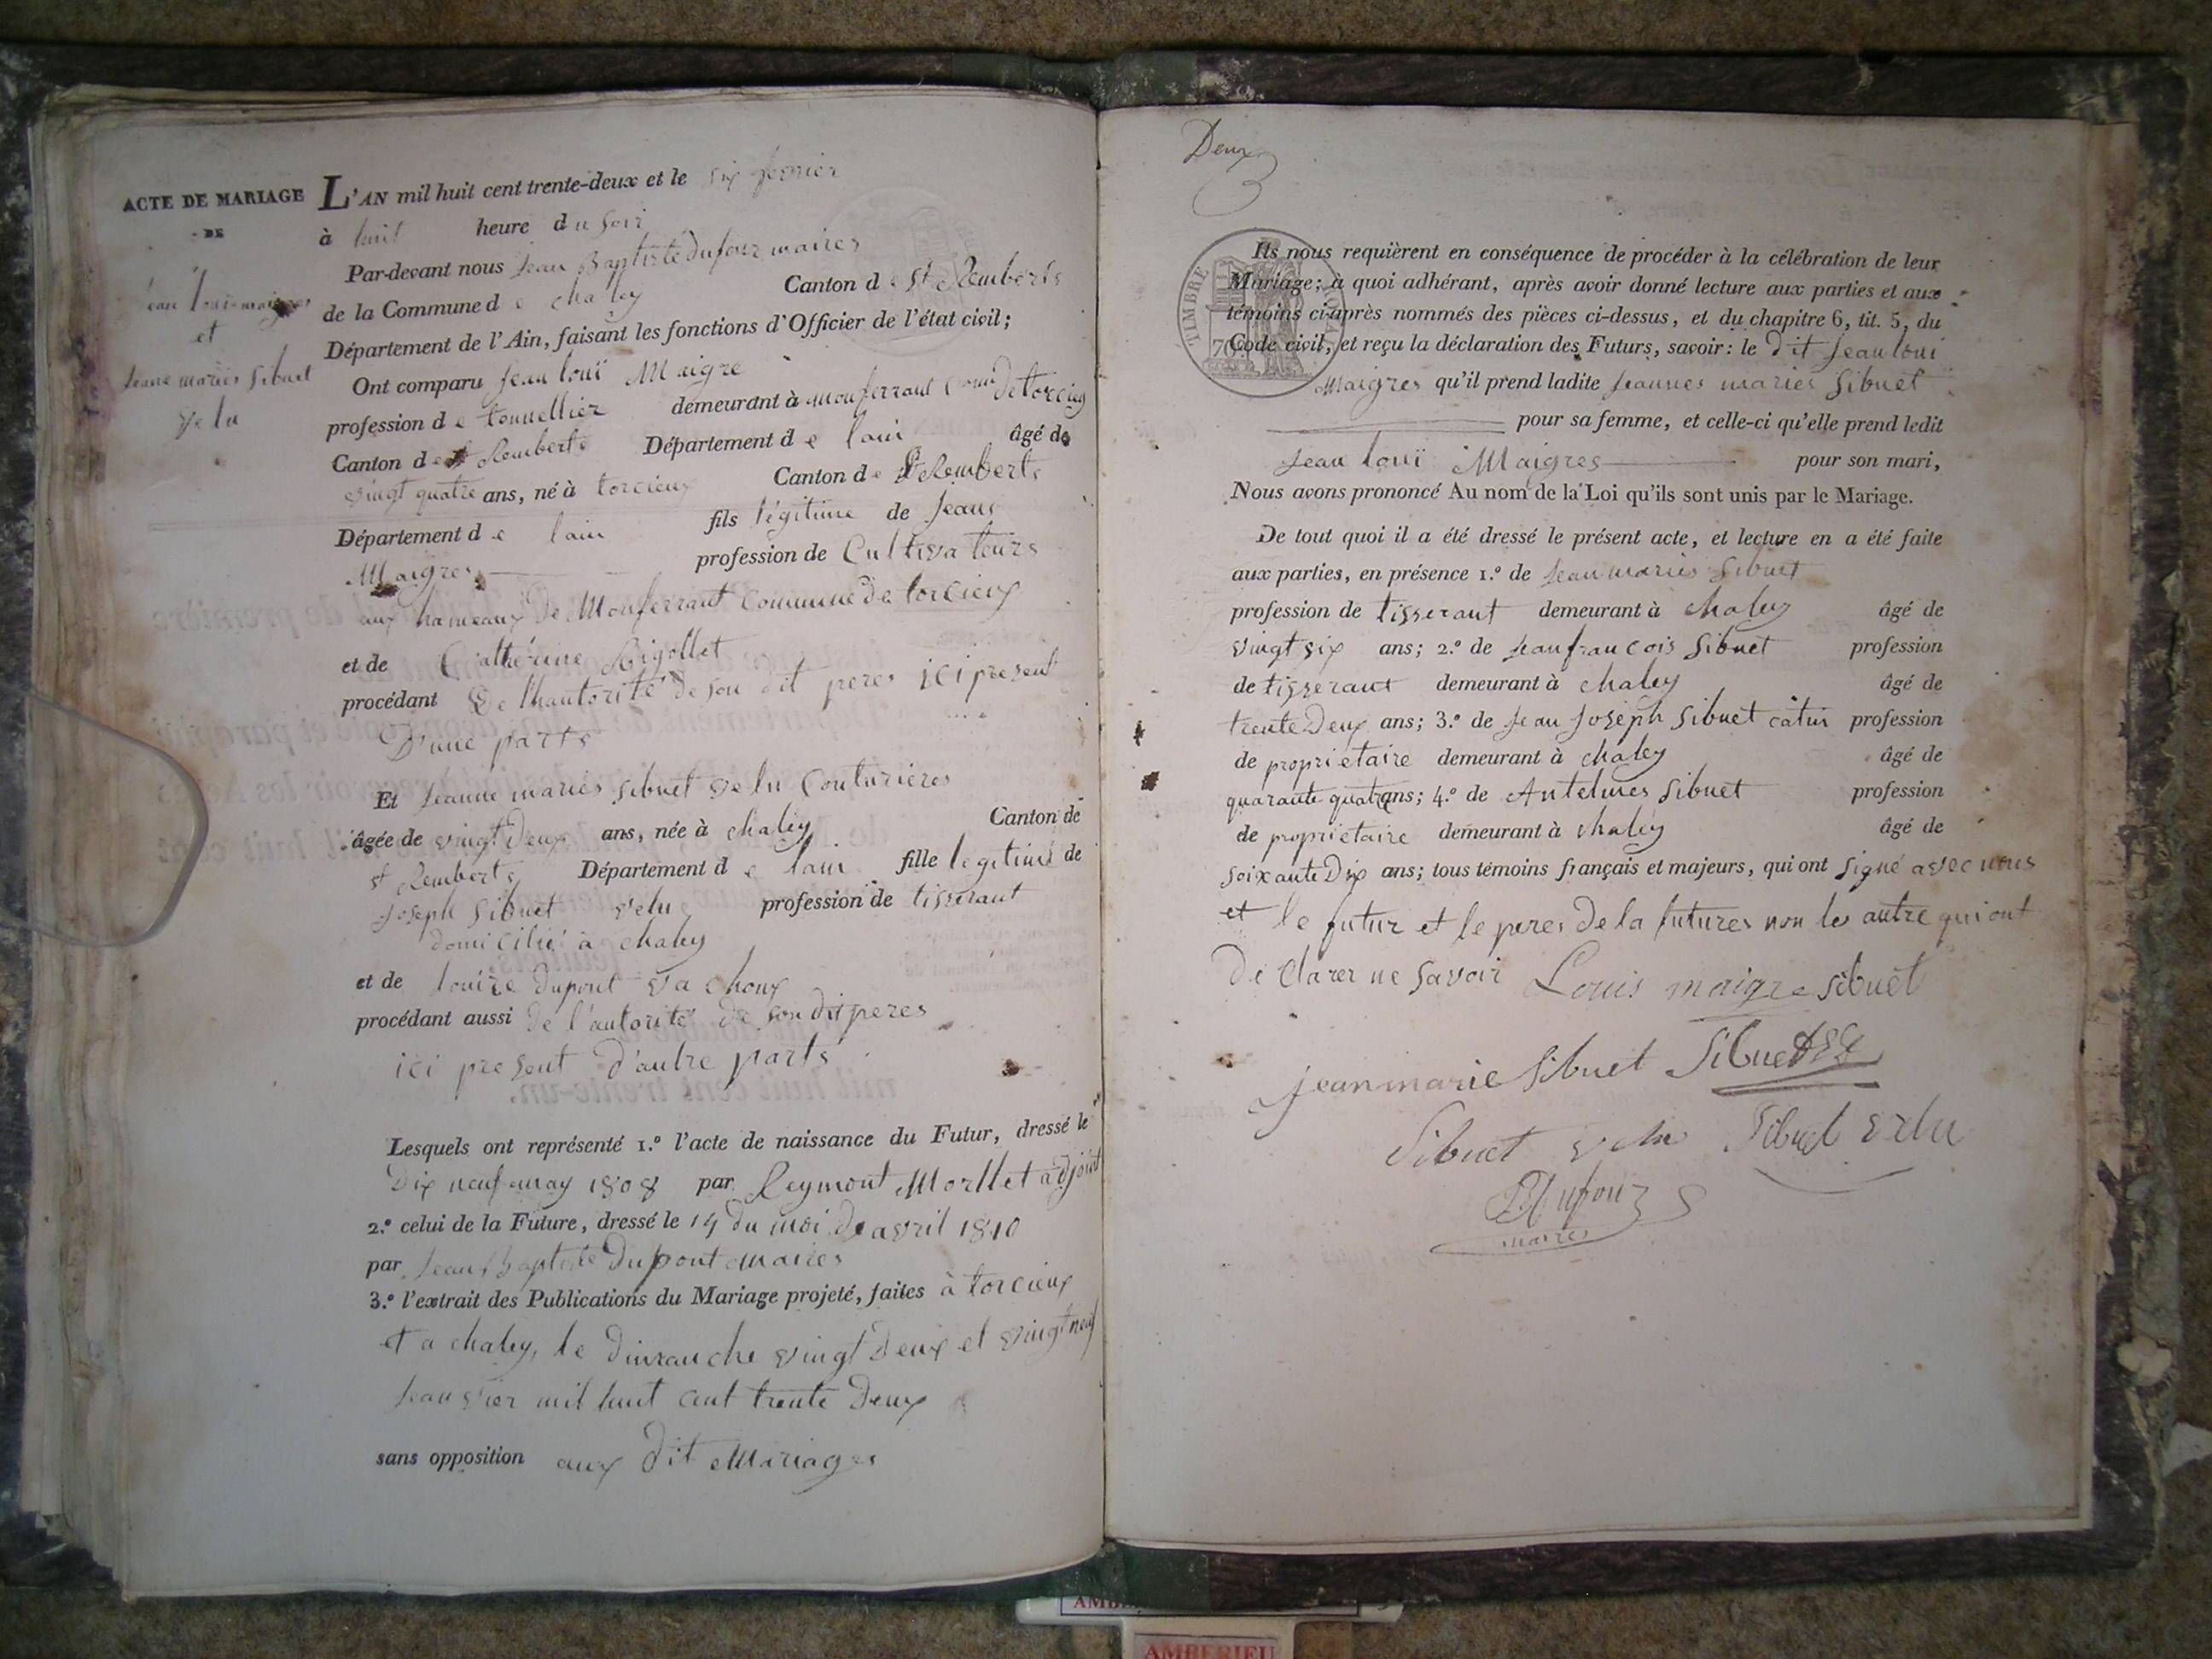 ACTE DE MARIAGE
DE
Jean loui maigres
et
Jeanne mariés Sibuet
velu
L'AN mil huit cent trente-deux et le six fevrier
à huit heure du soir
Par-devant nous Jean Baptiste Dufour maires
de la Commune de chaley Canton de st Remberts
Département de l'Ain, faisant les fonctions d'Officier de l'état civil;
Ont comparu Jean louï Maigre
profession de tonnellier demeurant à monferrant de torcieu
Canton de st Remberts Département de lain âgé de
vingt quatre ans, né à torcieux Canton de St Remberts
Département de lain fils légitime de Jean
Maigres profession de Cultivateurs
aux hameaux de Monferrant Commune de torcieux
et de Catherine Rigollet
procédant De lhautorité de son dit peres ici present
D'une parts
Et Jeanne mariés sibuet velu Couturieres
âgée de vingt Deux ans, née à chaley Canton de
st Remberts Département de lain fille legetime de
Joseph Sibuet velu profession de tisserant
domicilié à chaley
et de louise dupont vachoux
procédant aussi de l'autorité de son dit peres
ici present d'autre parts
Lesquels ont représenté 1.º l'acte de naissance du Futur, dressé le
Dix neuf may 1808 par Reymont Morllet adjoint
2.º celui de la Future, dressé le 14 du moi de avril 1810
par Jean Baptiste Dupont maires
3.º l'extrait des Publications du Mariage projeté, faites à torcieux
et a chaley, le Dimanche vingt Deux et vingt neuf
Jeanvier mil huit cent trente Deux
sans opposition aux dit Mariages
Deux
TIMBRE ROYAL
70
Ils nous requièrent en conséquence de procéder à la célébration de leur
Mariage; à quoi adhérant, après avoir donné lecture aux parties et aux
témoins ci-après nommés des pièces ci-dessus, et du chapitre 6, tit. 5, du
Code civil, et reçu la déclaration des Futurs, savoir: le dit Jean loui
Maigres qu'il prend ladite Jeannes maries Sibuet
pour sa femme, et celle-ci qu'elle prend ledit
Jean louï Maigres pour son mari,
Nous avons prononcé Au nom de la Loi qu'ils sont unis par le Mariage.
De tout quoi il a été dressé le présent acte, et lecture en a été faite
aux parties, en présence 1.º de Jean mariés Sibuet
profession de tisserant demeurant à chaley âgé de
vingt six ans; 2.º de Jean francois Sibuet profession
de tisserant demeurant à chaley âgé de
trente Deux ans; 3.º de Jean Joseph Sibuet catin profession
de propriétaire demeurant à chaley âgé de
quarante quatre ans; 4.º de Antelmes Sibuet profession
de propriétaire demeurant à chaley âgé de
soixante Dix ans; tous témoins français et majeurs, qui ont signé avec nous
et le futur et le peres De la futures non les autre qui ont
Déclarer ne savoir Louis maigre sibuet
jeanmarie Sibuet Sibuet
Sibuet velu Sibuet velu
Dufour
maires
AMBERIEU